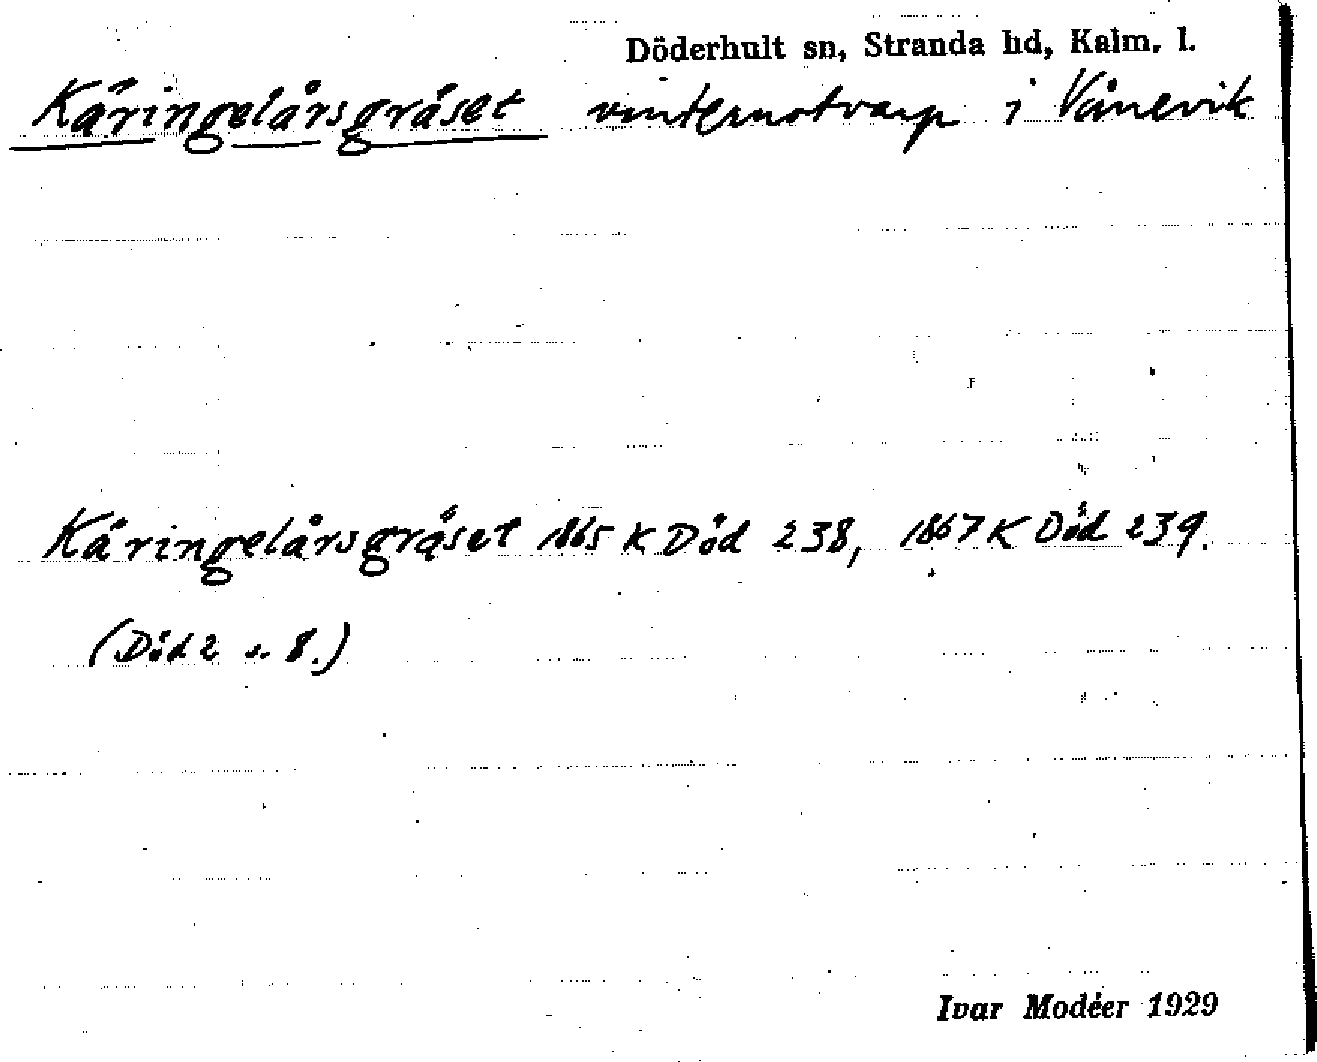 Döderhult sn, Stranda hd, Kalm. l.
Käringelårsgräset vinternotvarp i Vånevik
Käringelårsgräset 1865 K Död 238, 1867 K Död 239.
(Död 2 s. 8.)
Ivar Modéer 1929